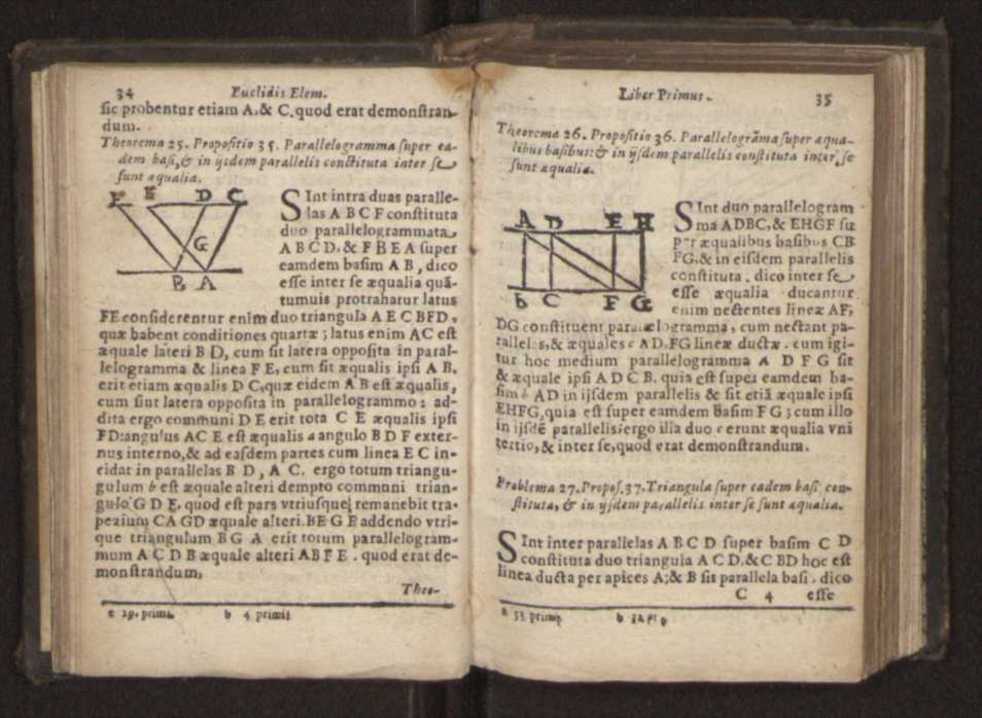 34 Euclidis Elem.
sic probentur etiam A.& C. quod erat demonstran-
dum.
Theorema 25. Propositio 35. Parallelogramma super ea-
dem basi, & in ijsdem parallelis constituta inter se
sunt æqualia.
F E D C
G
B A
SInt intra duas paralle-
las A B C F constituta
duo parallelogrammata
A B C D. & F B E A super
eamdem basim A B, dico
esse inter se æqualia quã-
tumuis protrahatur latus
FE considerentur enim duo triangula A E C BFD,
quæ habent conditiones quartæ; latus enim AC est
æquale lateri B D, cum sit latera opposita in paral-
lelogramma & linea F E, cum sit æqualis ipsi A B,
erit etiam æqualis D C, quæ eidem A B est æqualis,
cum sint latera opposita in parallelogrammo: ad-
dita ergo communi D E erit tota C E æqualis ipsi
FD: angulus AC E est æqualis a angulo B D F exter-
nus interno, & ad easdem partes cum linea E C in-
cidat in parallelas B D, A C. ergo totum triangu-
gulum b est æquale alteri dempto communi trian-
gulo G D E. quod est pars vtriusque; remanebit tra-
pezium CA GD æquale alteri. BE G F addendo vtri-
que triangulum B G A erit totum parallelogram-
mum A C D B æquale alteri ABFE. quod erat de-
monstrandum,
Theo-
a 29. primi. b 4 primi
Liber Primus. 35
Theorema 26. Propositio 36. Parallelogrãma super æqua-
libus basibus: & in ijsdem parallelis constituta inter se
sunt æqualia.
A D E H
b C F G
SInt duo parallelogram
ma ADBC, & EHGF su
per æqualibus basibus CB
FG. & in eisdem parallelis
constituta. dico inter se
esse æqualia ducantur
enim nectentes lineæ AF,
DG constituent parallelogramma, cum nectant pa-
rallelas, & æquales AD. FG lineæ ductæ. cum igi-
tur hoc medium parallelogramma A D F G sit
& æquale ipsi A D C B. quia est super eamdem ba-
sim b AD in ijsdem parallelis & sit etiã æquale ipsi
EHFG, quia est super eamdem basim F G; cum illo
in ijsdẽ parallelis: ergo illa duo erunt æqualia vni
tertio, & inter se, quod erat demonstrandum.
Problema 27. Propos. 37. Triangula super eadem basi con-
stituta, & in ijsdem parallelis inter se sunt æqualia.
SInt inter parallelas A B C D super basim C D
constituta duo triangula A C D. & C BD hoc est
linea ducta per apices A; & B sit parallela basi. dico
C 4 esse
a 33 primi b